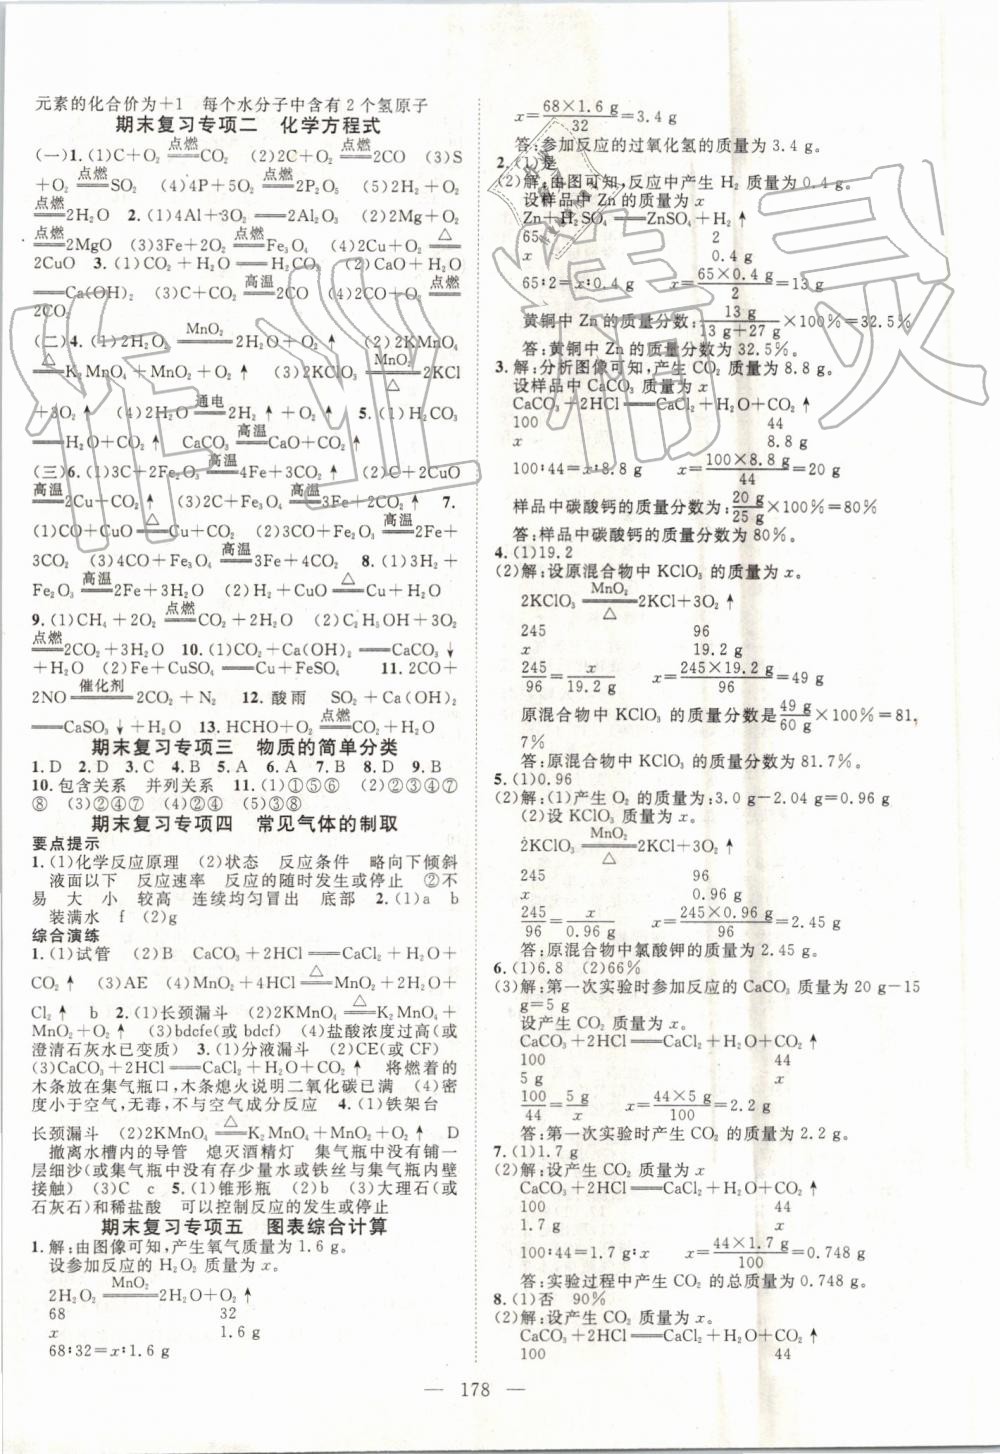 元素的化合价为+1　每个水分子中含有2个氢原子
期末复习专项二　化学方程式
(一)1.(1)C+O₂ 点燃 CO₂　(2)2C+O₂ 点燃 2CO　(3)S
+O₂ 点燃 SO₂　(4)4P+5O₂ 点燃 2P₂O₅　(5)2H₂+O₂
点燃 2H₂O　2.(1)4Al+3O₂══2Al₂O₃　(2)2Mg+O₂
点燃 2MgO　(3)3Fe+2O₂ 点燃 Fe₃O₄　(4)2Cu+O₂ △
2CuO　3.(1)CO₂+H₂O══H₂CO₃　(2)CaO+H₂O
══Ca(OH)₂　(3)C+CO₂ 高温 2CO　(4)2CO+O₂ 点燃
2CO₂
(二)4.(1)2H₂O₂ MnO₂ 2H₂O+O₂↑　(2)2KMnO₄
△ K₂MnO₄+MnO₂+O₂↑　(3)2KClO₃ MnO₂ △ 2KCl
+3O₂↑　(4)2H₂O 通电 2H₂↑+O₂↑　5.(1)H₂CO₃
══H₂O+CO₂↑　CaCO₃ 高温 CaO+CO₂↑
(三)6.(1)3C+2Fe₂O₃ 高温 4Fe+3CO₂↑　(2)C+2CuO
高温 2Cu+CO₂↑　(3)2C+Fe₃O₄ 高温 3Fe+2CO₂↑　7.
(1)CO+CuO △ Cu+CO₂　(2)3CO+Fe₂O₃ 高温 2Fe+
3CO₂　(3)4CO+Fe₃O₄ 高温 3Fe+4CO₂　8.(1)3H₂+
Fe₂O₃ 高温 2Fe+3H₂O　(2)H₂+CuO △ Cu+H₂O
9.(1)CH₄+2O₂ 点燃 CO₂+2H₂O　(2)C₂H₅OH+3O₂
点燃 2CO₂+3H₂O　10.(1)CO₂+Ca(OH)₂══CaCO₃↓
+H₂O　(2)Fe+CuSO₄══Cu+FeSO₄　11.2CO+
2NO 催化剂 2CO₂+N₂　12.酸雨　SO₂+Ca(OH)₂
══CaSO₃↓+H₂O　13.HCHO+O₂ 点燃 CO₂+H₂O
期末复习专项三　物质的简单分类
1.D　2.D　3.C　4.B　5.A　6.A　7.B　8.D　9.B
10.包含关系　并列关系　11.(1)①⑤⑥　(2)②③④⑦
⑧　(3)②④⑦　(4)②④　(5)③⑧
期末复习专项四　常见气体的制取
要点提示
1.(1)化学反应原理　(2)状态　反应条件　略向下倾斜
液面以下　反应速率　反应的随时发生或停止　②不
易　大　小　较高　连续均匀冒出　底部　2.(1)a　b
装满水　f　(2)g
综合演练
1.(1)试管　(2)B　CaCO₃+2HCl══CaCl₂+H₂O+
CO₂↑　(3)AE　(4)MnO₂+4HCl △ MnCl₂+2H₂O+
Cl₂↑　b　2.(1)长颈漏斗　(2)2KMnO₄ △ K₂MnO₄+
MnO₂+O₂↑　(3)bdcfe(或bdcf)　(4)盐酸浓度过高(或
澄清石灰水已变质)　3.(1)分液漏斗　(2)CE(或CF)
(3)CaCO₃+2HCl══CaCl₂+H₂O+CO₂↑　将燃着的
木条放在集气瓶口,木条熄火说明二氧化碳已满　(4)密
度小于空气,无毒,不与空气成分反应　4.(1)铁架台
长颈漏斗　(2)2KMnO₄ △ K₂MnO₄+MnO₂+O₂↑　D
撤离水槽内的导管　熄灭酒精灯　集气瓶中没有铺一
层细沙(或集气瓶中没有存少量水或铁丝与集气瓶内壁
接触)　(3)C　c　5.(1)锥形瓶　(2)b　(3)大理石(或
石灰石)和稀盐酸　可以控制反应的发生或停止
期末复习专项五　图表综合计算
1.解:由图像可知,产生氧气质量为1.6 g。
设参加反应的H₂O₂质量为x。
2H₂O₂ MnO₂ 2H₂O+O₂↑
68　32
x　1.6 g
68∶32=x∶1.6 g
x=68×1.6 g/32=3.4 g
答:参加反应的过氧化氢的质量为3.4 g。
2.(1)是
(2)解:由图可知,反应中产生H₂质量为0.4 g。
设样品中Zn的质量为x
Zn+H₂SO₄══ZnSO₄+H₂↑
65　2
x　0.4 g
65∶2=x∶0.4 g　x=65×0.4 g/2=13 g
黄铜中Zn的质量分数:13 g/(13 g+27 g)×100%=32.5%
答:黄铜中Zn的质量分数为32.5%。
3.解:分析图像可知,产生CO₂质量为8.8 g。
设样品中CaCO₃质量为x
CaCO₃+2HCl══CaCl₂+H₂O+CO₂↑
100　44
x　8.8 g
100∶44=x∶8.8 g　x=100×8.8 g/44=20 g
样品中碳酸钙的质量分数为:20 g/25 g×100%=80%
答:样品中碳酸钙的质量分数为80%。
4.(1)19.2
(2)解:设原混合物中KClO₃的质量为x。
2KClO₃ MnO₂ △ 2KCl+3O₂↑
245　96
x　19.2 g
245/96=x/19.2 g　x=245×19.2 g/96=49 g
原混合物中KClO₃的质量分数是49 g/60 g×100%=81.
7%
答:原混合物中KClO₃的质量分数为81.7%。
5.(1)0.96
(2)解:(1)产生O₂的质量为:3.0 g-2.04 g=0.96 g
(2)设KClO₃质量为x。
2KClO₃ MnO₂ △ 2KCl+3O₂↑
245　96
x　0.96 g
245/96=x/0.96 g　x=245×0.96 g/96=2.45 g
答:原混合物中氯酸钾的质量为2.45 g。
6.(1)6.8　(2)66%
(3)解:第一次实验时参加反应的CaCO₃质量为20 g-15
g=5 g
设产生CO₂质量为x。
CaCO₃+2HCl══CaCl₂+H₂O+CO₂↑
100　44
5 g　x
100/44=5 g/x　x=44×5 g/100=2.2 g
答:第一次实验时产生CO₂的质量为2.2 g。
7.(1)1.7 g
(2)解:设产生CO₂质量为x
CaCO₃+2HCl══CaCl₂+H₂O+CO₂↑
100　44
1.7 g　x
100∶44=1.7 g∶x　x=44×1.7 g/100=0.748 g
答:实验过程中产生CO₂的总质量为0.748 g。
8.(1)否　90%
(2)解:设产生CO₂质量为x。
CaCO₃+2HCl══CaCl₂+H₂O+CO₂↑
100　44
— 178 —
作业精灵